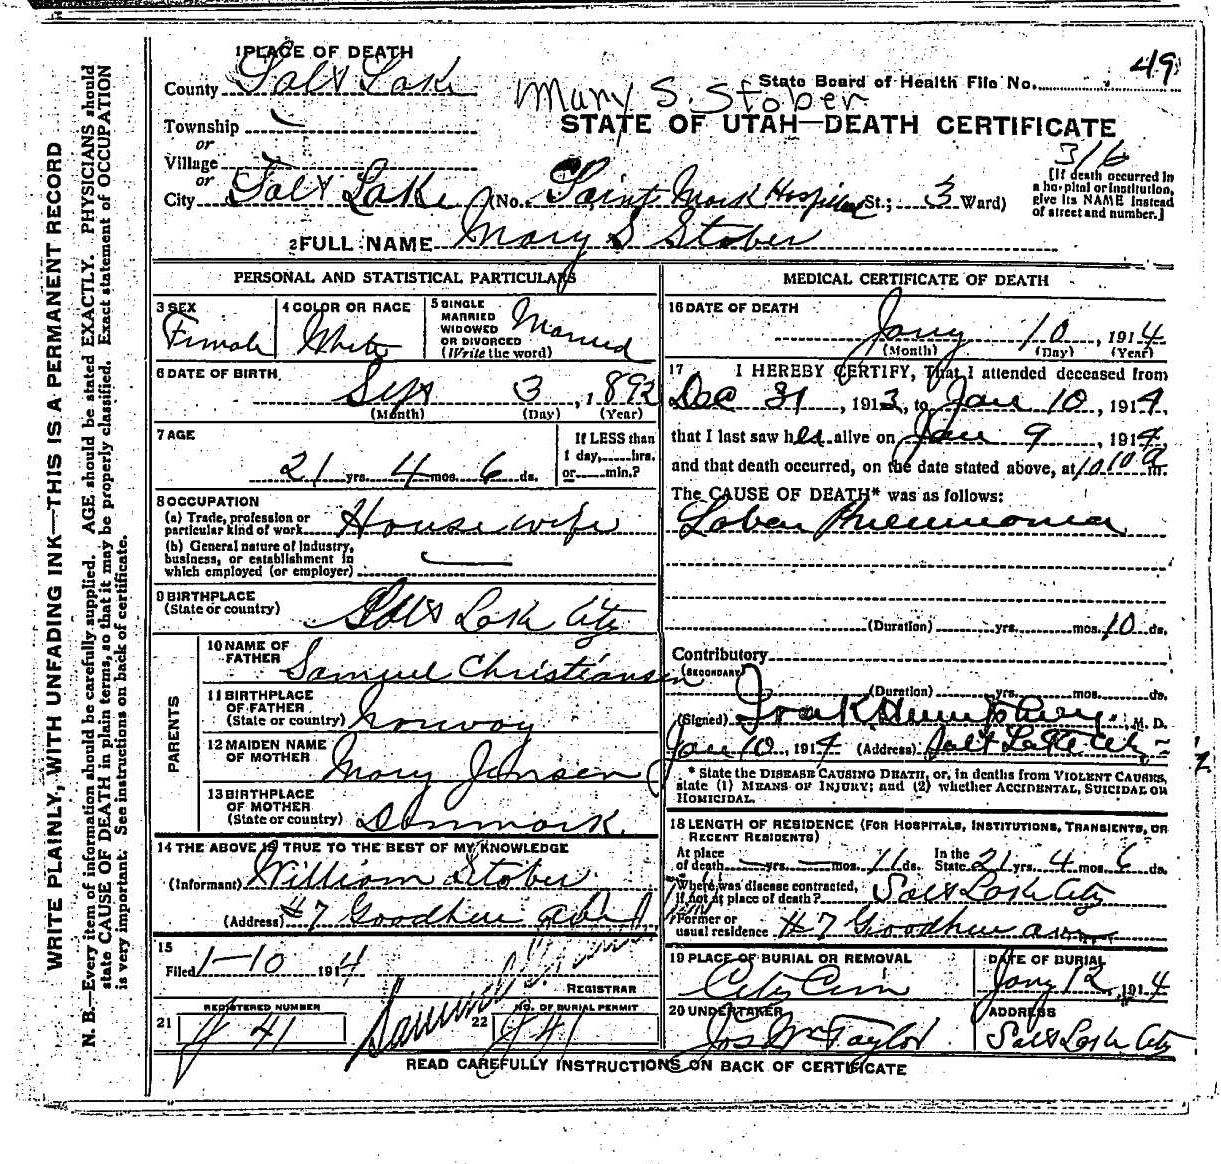 1 PLACE OF DEATH
County Salt Lake
Mary S. Stober
State Board of Health File No. 49
Township
or
Village
or
City Salt Lake (No. Saint Mark Hospital St.; 3 Ward)
STATE OF UTAH—DEATH CERTIFICATE
316
[If death occurred in
a hospital or institution,
give its NAME instead
of street and number.]
2 FULL NAME Mary S Stober
PERSONAL AND STATISTICAL PARTICULARS
3 SEX
Female
4 COLOR OR RACE
White
5 SINGLE
MARRIED
WIDOWED
OR DIVORCED
(Write the word)
Married
6 DATE OF BIRTH
Sept 3, 1892
(Month) (Day) (Year)
7 AGE
21 yrs. 4 mos. 6 ds.
If LESS than
1 day,.....hrs.
or.....min.?
8 OCCUPATION
(a) Trade, profession or
particular kind of work Housewife
(b) General nature of industry,
business, or establishment in
which employed (or employer)
9 BIRTHPLACE
(State or country) Salt Lake City
PARENTS
10 NAME OF
FATHER Samuel Christiansen
11 BIRTHPLACE
OF FATHER
(State or country) Norway
12 MAIDEN NAME
OF MOTHER Mary Jensen
13 BIRTHPLACE
OF MOTHER
(State or country) Denmark
14 THE ABOVE IS TRUE TO THE BEST OF MY KNOWLEDGE
(Informant) William Stober
(Address) #7 Goodhue
15
Filed 1-10 1914
REGISTRAR
REGISTERED NUMBER
21 41
NO. OF BURIAL PERMIT
22 41
MEDICAL CERTIFICATE OF DEATH
16 DATE OF DEATH
Jany 10, 1914
(Month) (Day) (Year)
17 I HEREBY CERTIFY, That I attended deceased from
Dec 31, 1913, to Jan 10, 1914,
that I last saw her alive on Jan 9, 1914,
and that death occurred, on the date stated above, at 10 10 a m.
The CAUSE OF DEATH* was as follows:
Lobar Pneumonia
(Duration) yrs. mos. 10 ds.
Contributory
(SECONDARY)
(Duration) yrs. mos. ds.
(Signed) Humphrey M. D.
Jan 10, 1914 (Address) Salt Lake City
* State the DISEASE CAUSING DEATH, or, in deaths from VIOLENT CAUSES,
state (1) MEANS OF INJURY; and (2) whether ACCIDENTAL, SUICIDAL OR
HOMICIDAL.
18 LENGTH OF RESIDENCE (FOR HOSPITALS, INSTITUTIONS, TRANSIENTS, OR
RECENT RESIDENTS)
At place
of death — yrs. — mos. 11 ds. In the
State 21 yrs. 4 mos. 6 ds.
Where was disease contracted,
if not at place of death? Salt Lake City
Former or
usual residence #7 Goodhue ave
19 PLACE OF BURIAL OR REMOVAL
City Cem
DATE OF BURIAL
Jany 12, 1914
20 UNDERTAKER
Jos Wm Taylor
ADDRESS
Salt Lake City
READ CAREFULLY INSTRUCTIONS ON BACK OF CERTIFICATE
WRITE PLAINLY, WITH UNFADING INK—THIS IS A PERMANENT RECORD
N. B.—Every item of information should be carefully supplied. AGE should be stated EXACTLY. PHYSICIANS should
state CAUSE OF DEATH in plain terms, so that it may be properly classified. Exact statement of OCCUPATION
is very important. See instructions on back of certificate.